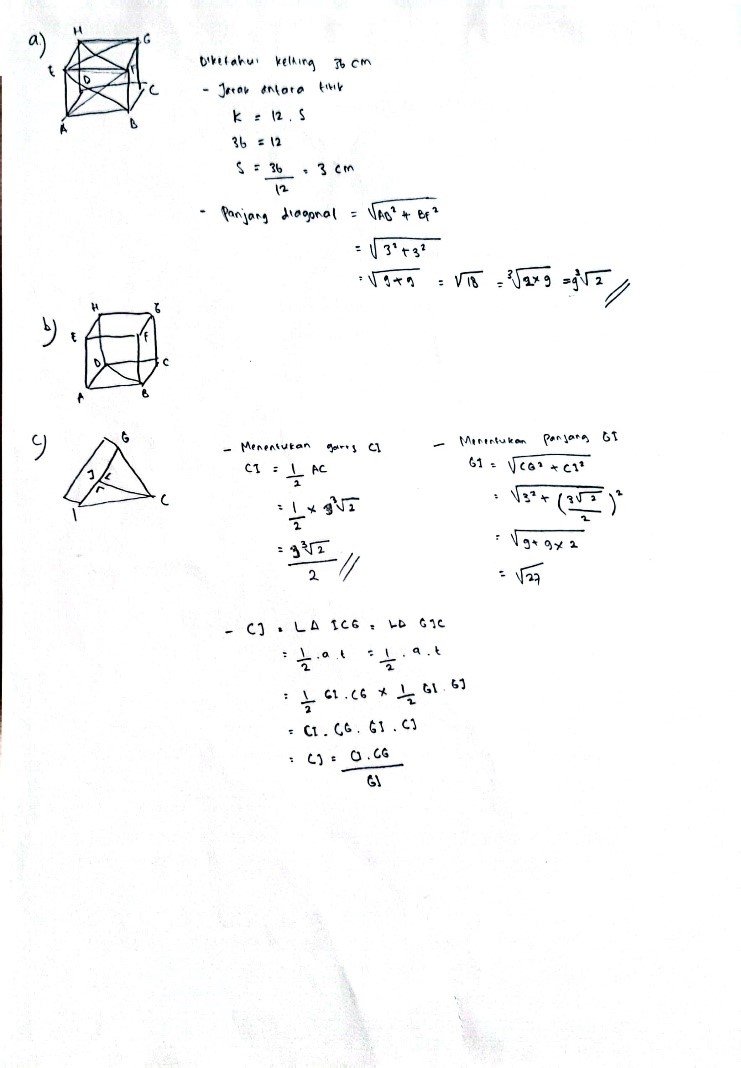 a)
H G
E F
D C
A B
Diketahui keliling 36 cm
- Jarak antara titik
K = 12 . S
36 = 12
S = 36/12 = 3 cm
- Panjang diagonal = √AB² + BF²
= √3² + 3²
= √9+9 = √18 = ³√2×9 = 9³√2 //
b)
H G
E F
D C
A B
c)
G
J
I C
- Menentukan garis CI
CI = 1/2 AC
= 1/2 × 3³√2
= 3³√2 / 2 //
- Menentukan panjang GI
GI = √CG² + CI²
= √3² + (3√2/2)²
= √9+9×2
= √27
- CJ = LΔ ICG = LΔ GJC
= 1/2 . a . t = 1/2 . a . t
= 1/2 CI . CG × 1/2 GI . GJ
= CI . CG . GI . CJ
= CJ = CI . CG / GI